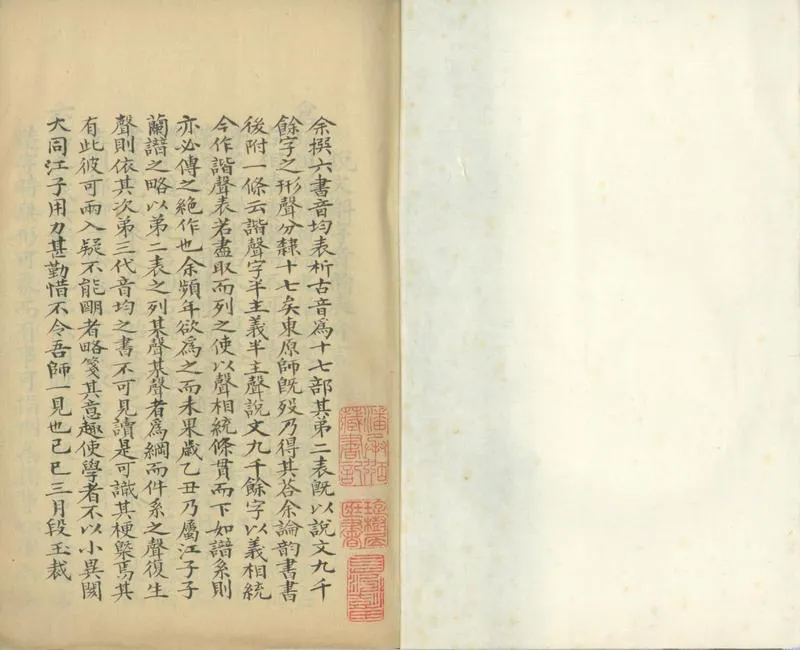 余撰六書音均表析古音爲十七部其弟二表旣以說文九千
餘字之形聲分隸十七矣東原師旣歿乃得其荅余論韵書書
後附一條云諧聲字半主義半主聲說文九千餘字以義相統
今作諧聲表若盡取而列之使以聲相統條貫而下如譜系則
亦必傳之絶作也余頻年欲爲之而未果歲乙丑乃屬江子子
蘭譜之略以弟二表之列某聲某聲者爲綱而件系之聲復生
聲則依其次弟三代音均之書不可見讀是可識其梗槩焉其
有此彼可兩入疑不能明者略箋其意趣使學者不以小異閡
大同江子用力甚勤惜不令吾師一見也己巳三月段玉裁
藏書記